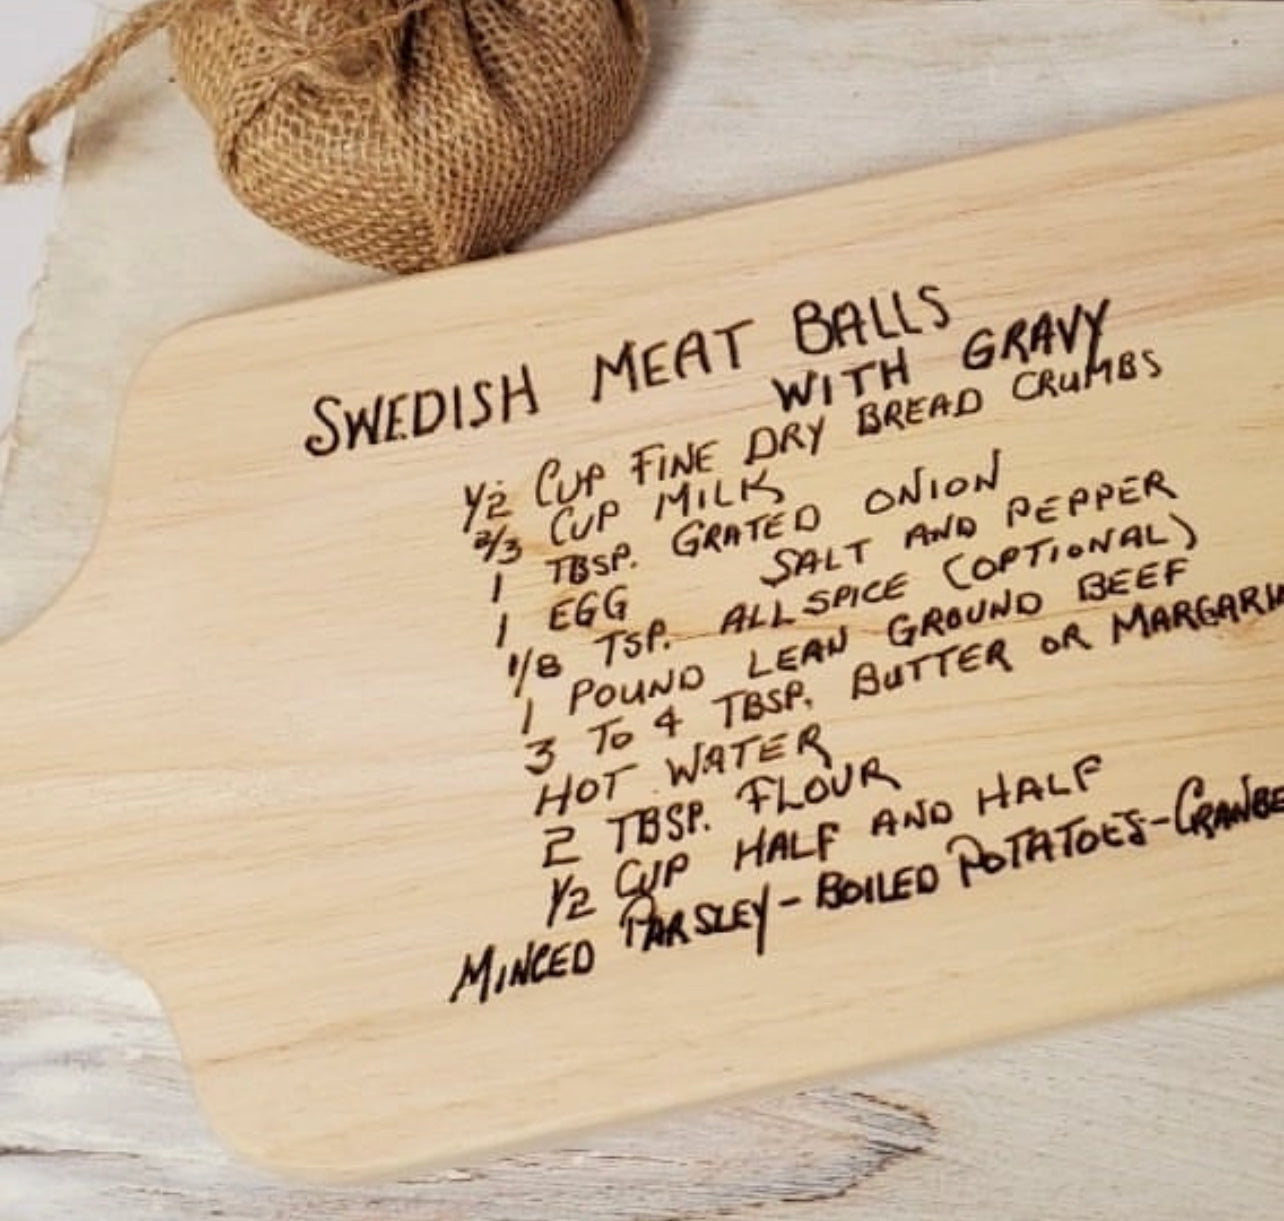 SWEDISH MEAT BALLS
WITH GRAVY
1/2 CUP FINE DRY BREAD CRUMBS
2/3 CUP MILK
1 TBSP. GRATED ONION
1 EGG SALT AND PEPPER
1/8 TSP. ALLSPICE (OPTIONAL)
1 POUND LEAN GROUND BEEF
3 TO 4 TBSP. BUTTER OR MARGARIN
HOT WATER
2 TBSP. FLOUR
1/2 CUP HALF AND HALF
MINCED PARSLEY - BOILED POTATOES - CRANBE